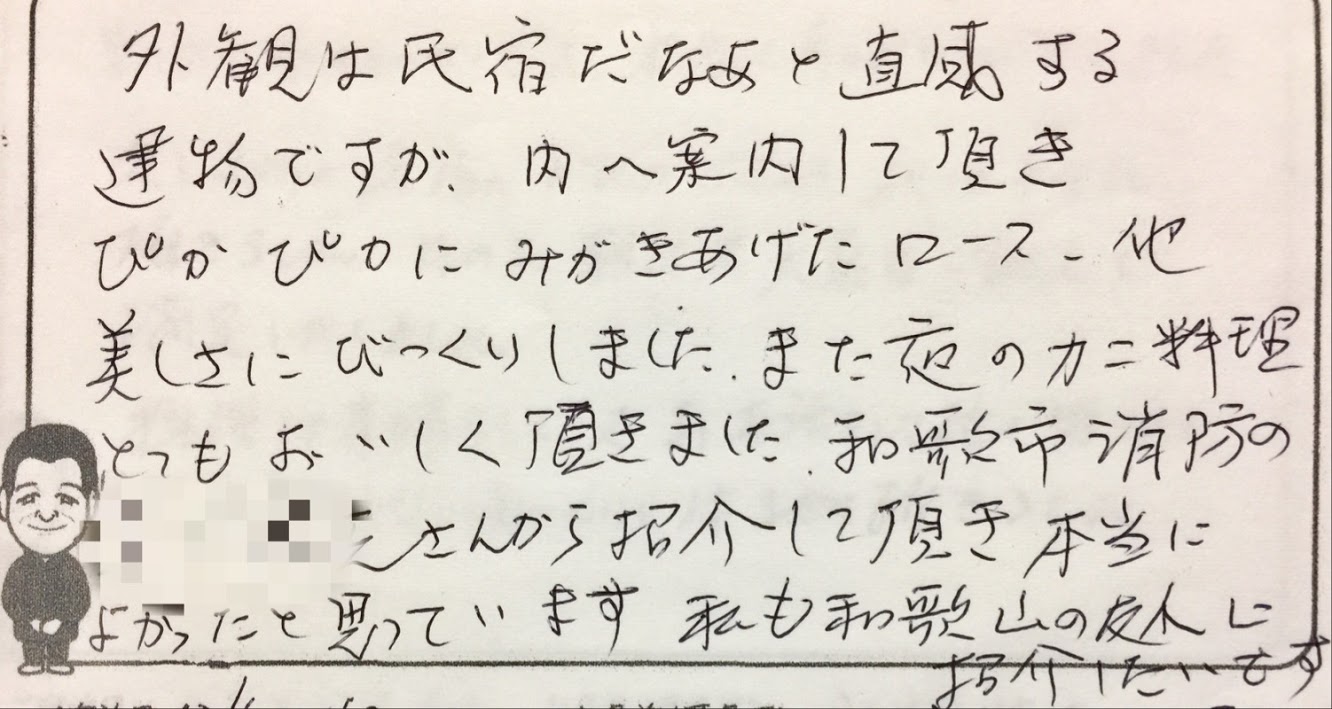 外観は民宿だなあと直感する
建物ですが、内へ案内して頂き
ぴかぴかにみがきあげたロース、他
美しさにびっくりしました、また夜のカニ料理
とってもおいしく頂きました、和歌市消防の
さんから紹介して頂き本当に
よかったと思っています 私も和歌山の友人に
紹介したいです